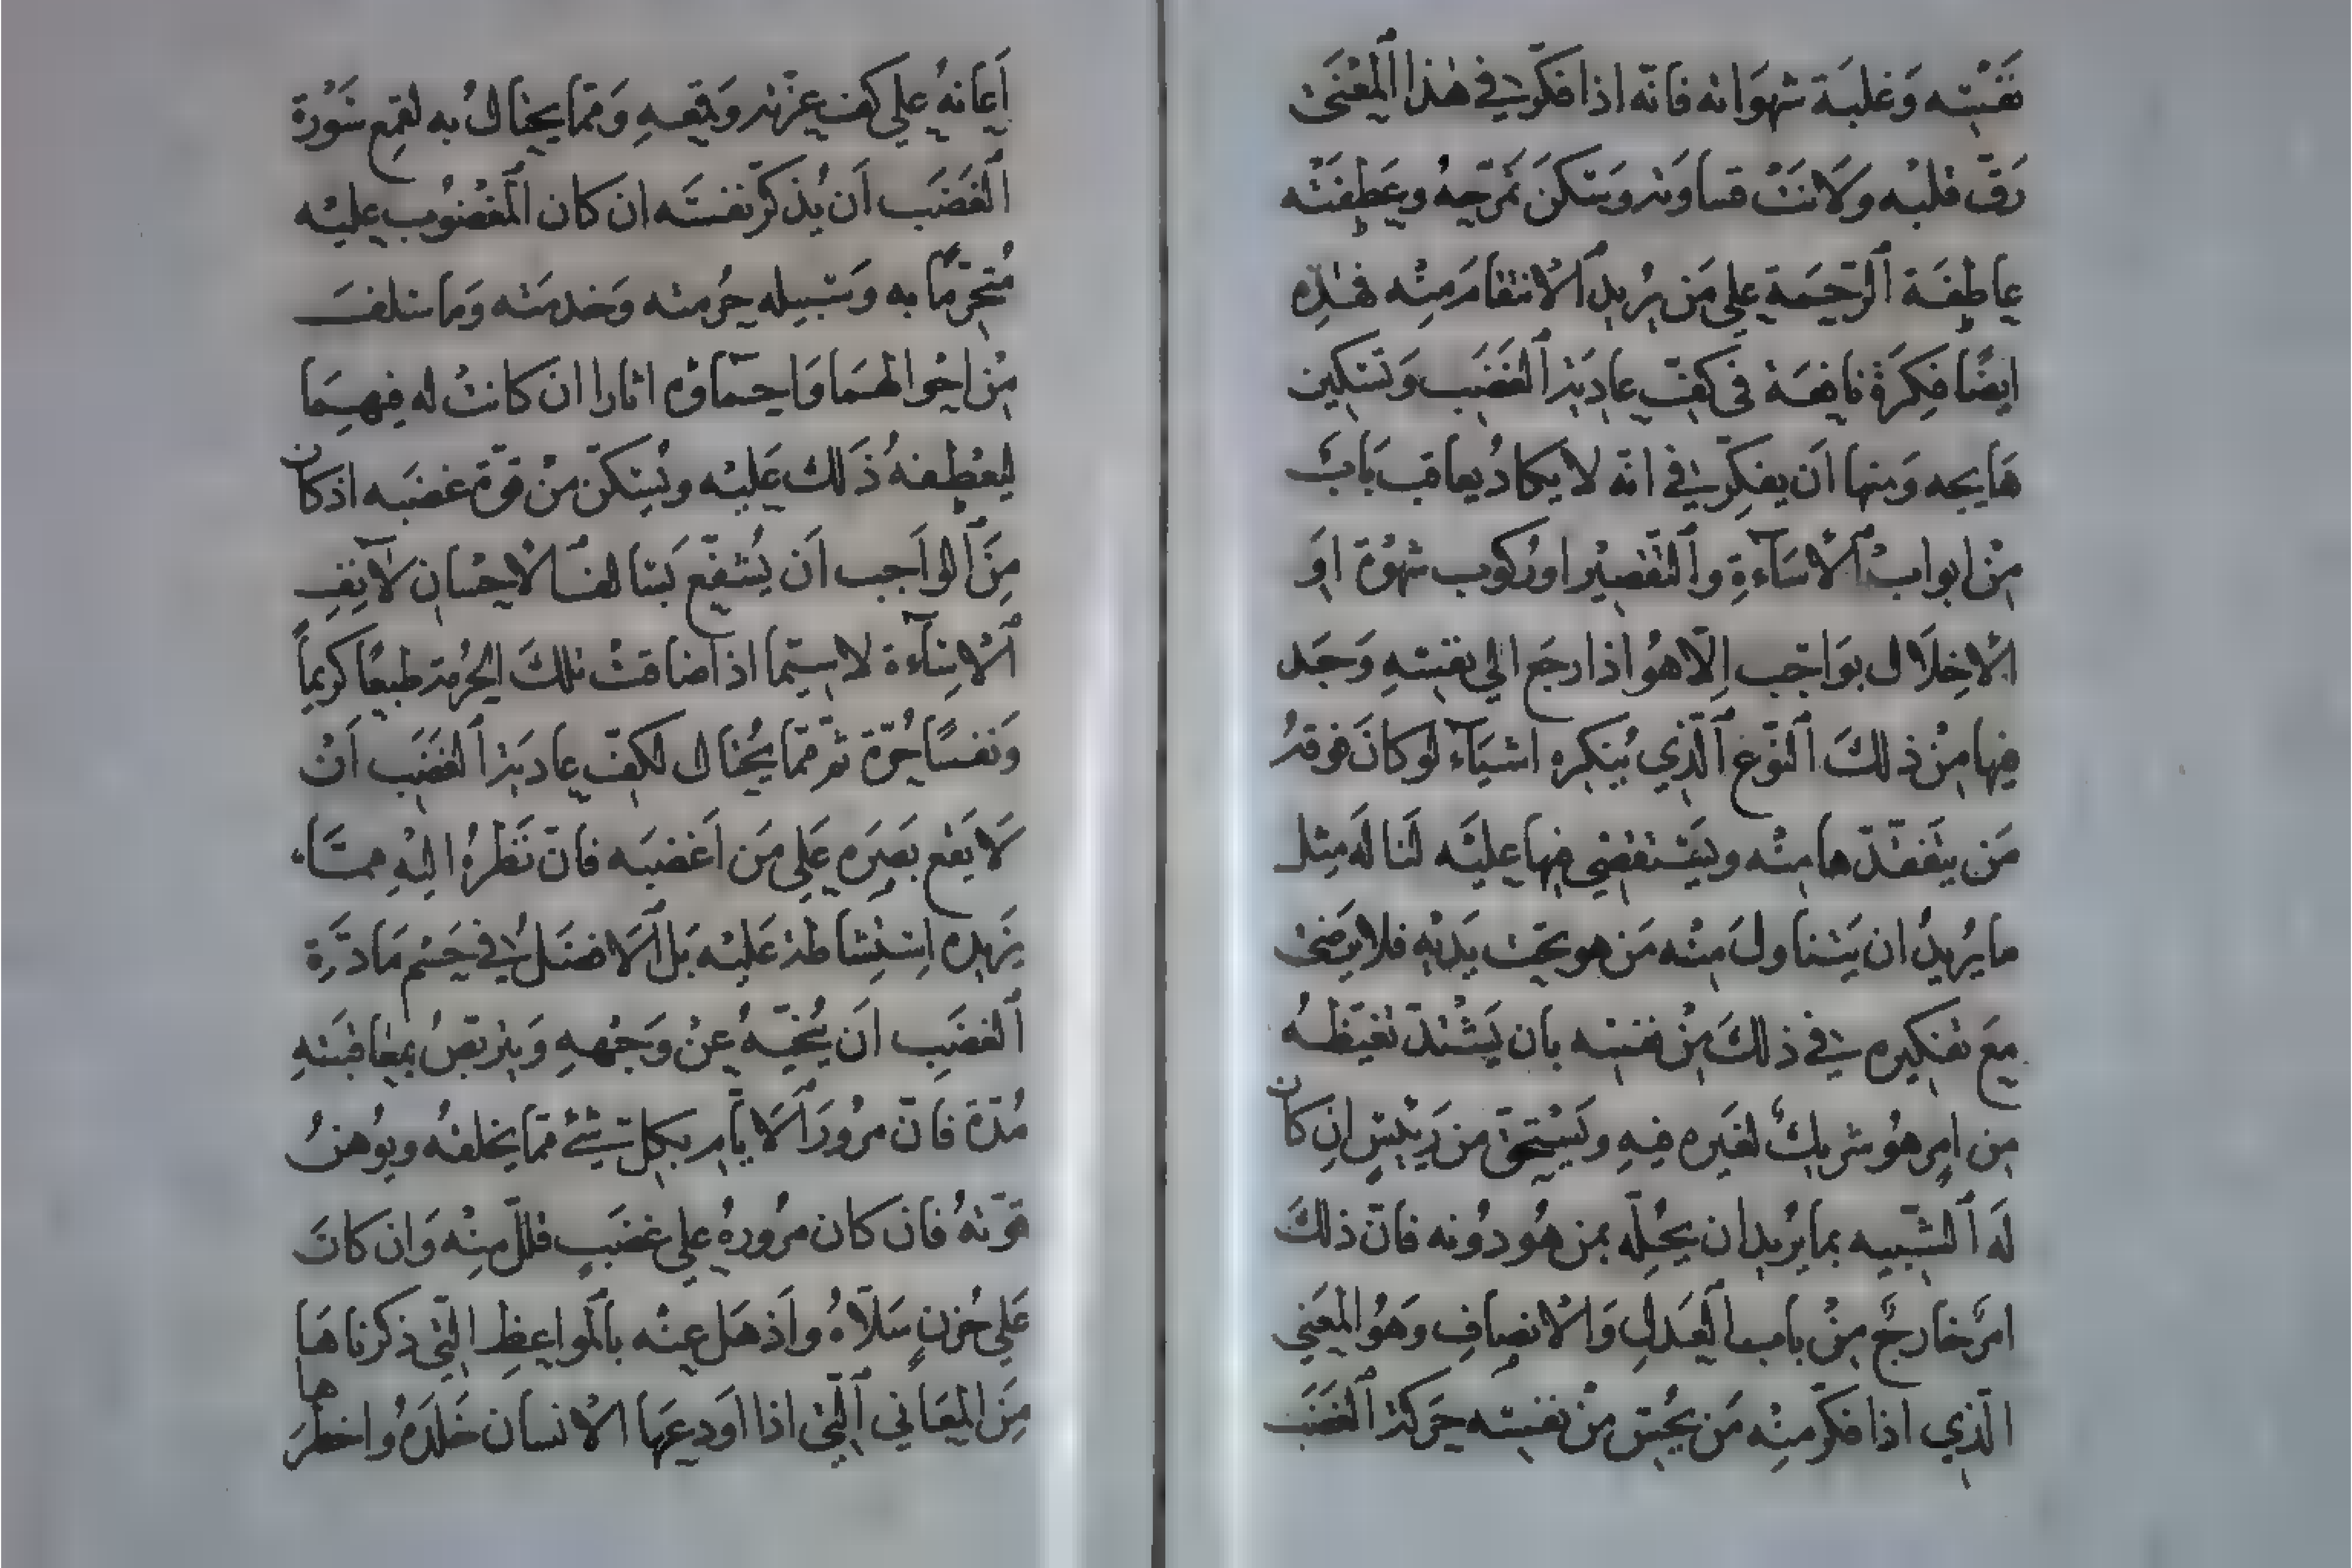 نفسه وغلبة شهواته فانه اذا فكر في هذا المعنى
رق قلبه ولانت قساوته وسكن تمرحه وعطفته
عاطفة الرحمة على من يريد الانتقام منه فهذه
ايضا فكرة نافعة في كف عادية الغضب وتسكين
هايجه ومنها ان يفكر في انه لا يكاد يعاقب باب
من ابواب الاساءة والتقصير او ركوب شهوة او
الاخلال بواجب الا هو اذا رجع الى نفسه وجد
فيها من ذلك النوع الذي ينكره اشياء لو كان فوقه
من يتفقدها منه ويستقضي فيها عليه لناله مثل
ما يريد ان يتناول منه من هو تحت يديه فلا يرضى
مع تفكيره في ذلك من نفسه بان يشتد تغيظه
من امر هو شريك لغيره فيه ويستحق من رييس ان كان
له الشبيه بما يريد ان يحله بمن هو دونه فان ذلك
امر خارج من باب العدل والانصاف وهو المعنى
الذي اذا فكر منه من يحس من نفسه حركة الغضب
اعانه على كف عزته وقمعه ومما يحتال به لقمع سورة
الغضب ان يذكر نفسه ان كان المغضوب عليه
متحرما به وسبيله حرمته وخدمته وما سلف
من احوالهما واحماؤه اثارا ان كانت له فيهما
ليعطفه ذلك عليه ويسكن من قوة غضبه اذ كان
من الواجب ان يشفع بسالف الاحسان لانف
الاساءة لا سيما اذا ضاقت تلك الحرمة طبعا كريما
ونفسا حرة ثم مما يحتال لكف عادية الغضب ان
لا يقع بصره على من اغضبه فان نظره اليه مما
يزيده استشاطة عليه بل الافضل في حسم مادة
الغضب ان ينحيه عن وجهه ويتربص بمعاقبته
مدة فان مرور الايام بكل شئ مما يخلقه ويوهن
قوته فان كان مروره على غضب قلل منه وان كان
على حزن سلاه واذهل عنه بالمواعظ التي ذكرناها
من المعاني التي اذا اودعها الانسان خلده واخطرها